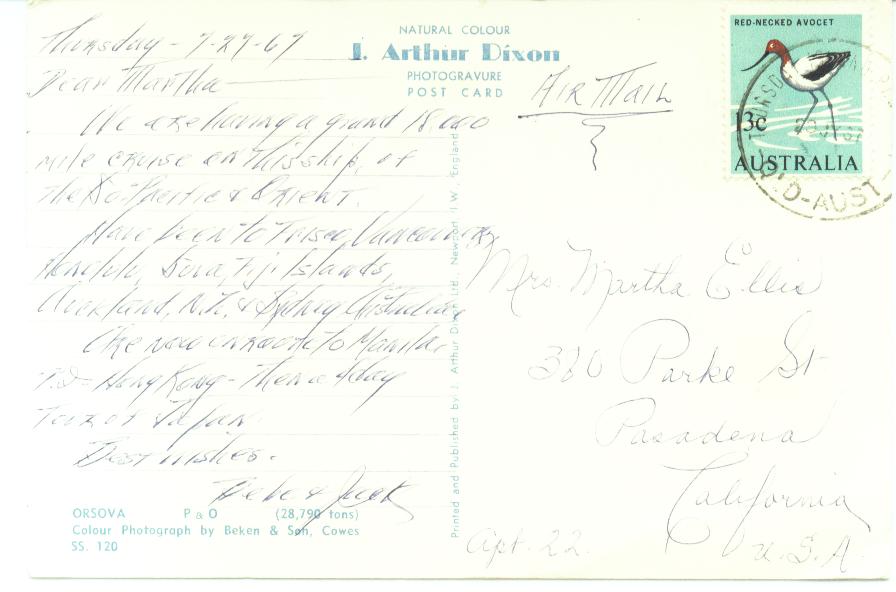 NATURAL COLOUR
J. Arthur Dixon
PHOTOGRAVURE
POST CARD
Thursday - 7-27-67
Dear Martha
We are having a grand 18,000
mile cruise on this ship, of
the So. Pacific & Orient.
Have been to Frisco, Vancouver,
Honolulu, Suva, Fiji Islands,
Auckland, N.Z. & Sydney Australia.
Are now enroute to Manila,
P.I. - Hong Kong - Then a 4 day
Tour of Japan.
Best wishes.
& Jack
ORSOVA P & O (28,790 tons)
Colour Photograph by Beken & Son, Cowes
SS. 120
Printed and Published by J. Arthur Dixon Ltd., Newport I.W., England
AIR MAIL
RED-NECKED AVOCET
13c
AUSTRALIA
Q'D-AUST
Mrs. Martha Ellis
330 Parke St
Pasadena
California
U.S.A.
Apt. 22.